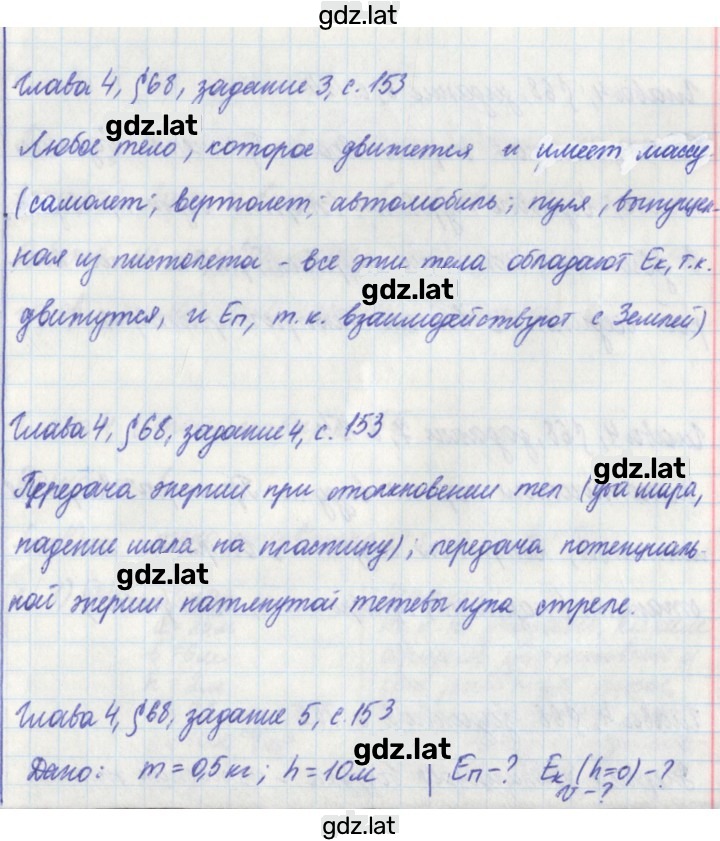 gdz.lat
Глава 4, § 68, задание 3, с. 153
gdz.lat
Любое тело, которое движется и имеет массу.
(самолет; вертолет; автомобиль; пуля, выпущен-
ная из пистолета - все эти тела обладают Eк, т.к.
gdz.lat
движутся, и Eп, т.к. взаимодействуют с Землей)
Глава 4, § 68, задание 4, с. 153
gdz.lat
Передача энергии при столкновении тел (два шара,
падение шара на пластину); передача потенциаль-
gdz.lat
ной энергии натянутой тетевы лука стреле.
Глава 4, § 68, задание 5, с. 153
gdz.lat
Дано: m = 0,5 кг; h = 10м | Eп - ? Eк (h=0) - ?
v - ?
gdz.lat